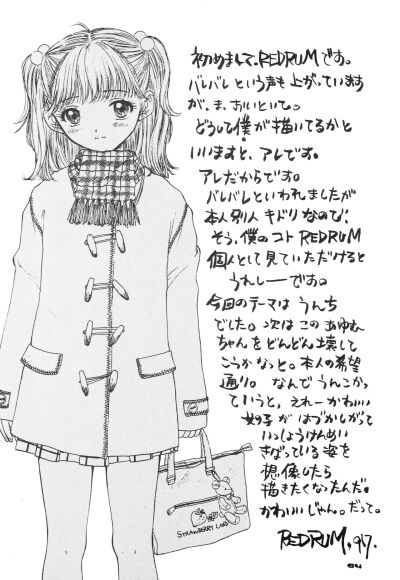 初めまして、REDRUMです。
バレバレという声も上がっています
が、ま、おいといて。
どうして僕が描いてるかと
いいますと、アレです。
アレだからです。
バレバレといわれましたが
本人別人キドリなので、
そう、僕のコト REDRUM
個人として見ていただけると
うれしーーです。
今回のテーマは うんち
でした。次は この あゆむ
ちゃんを どんどん 壊して
こうかなっと。本人の希望
通り。なんで うんこかっ
ていうと、えれーかわいい
女の子が はづかしがって
いっしょうけんめい
きばっている 姿を
想像したら
描きたくなったんだ。
かわいいじゃん。だって。
REDRUM, 9'7.
64
STRAWBERRY LAND